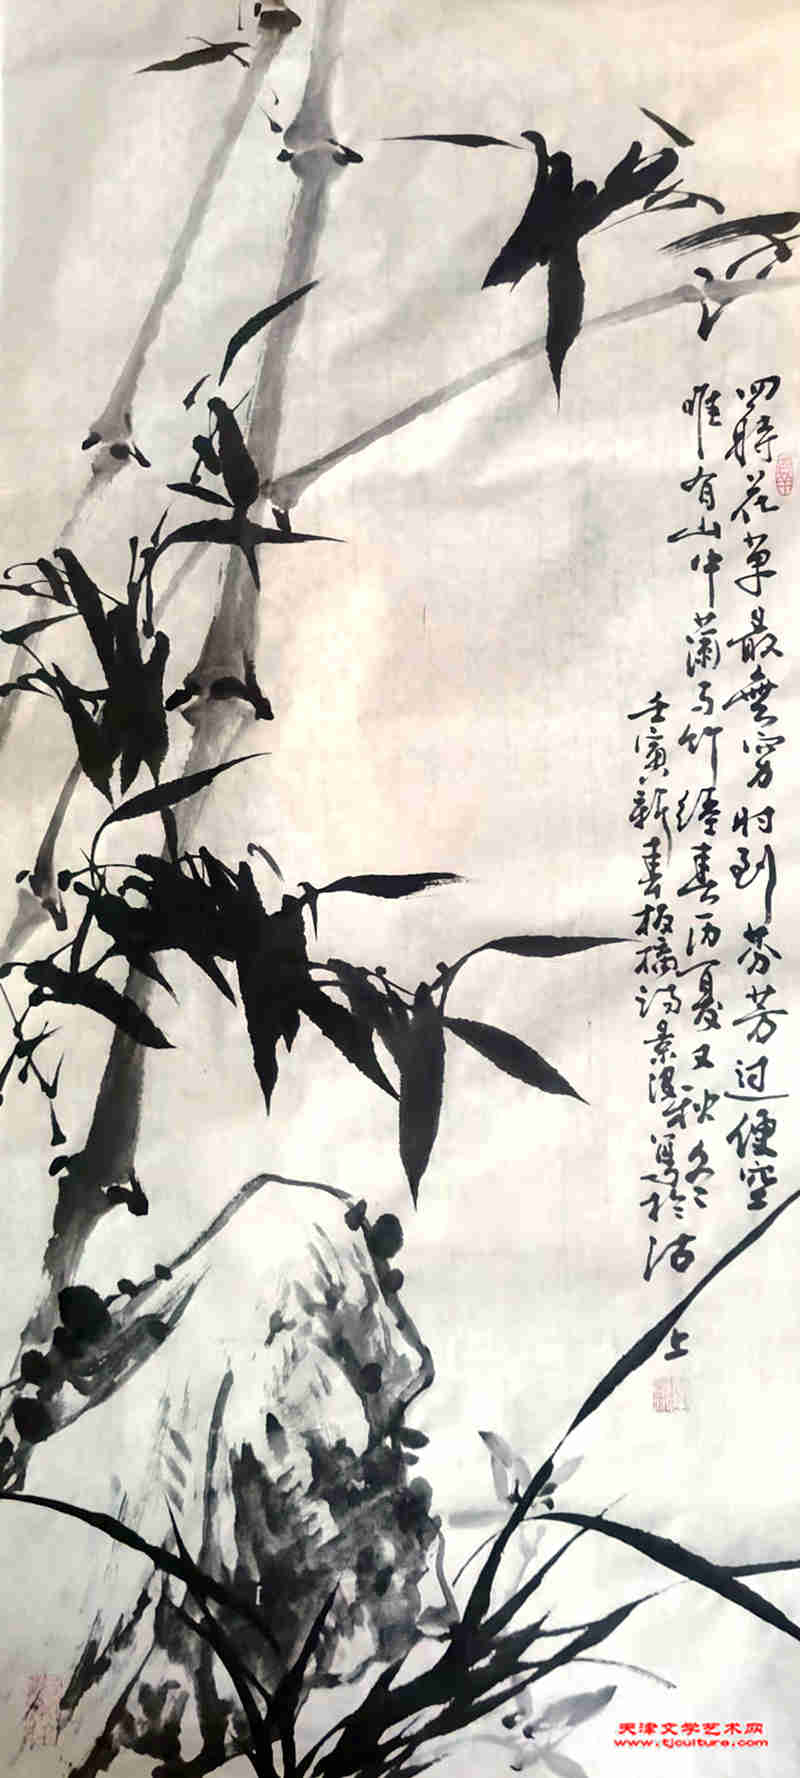 四時花草最無窮时到芬芳过便空
唯有山中蘭与竹經春历夏又秋冬
壬寅新春板橋诗漫写於沽上
天津文学艺术网
www.tjculture.com